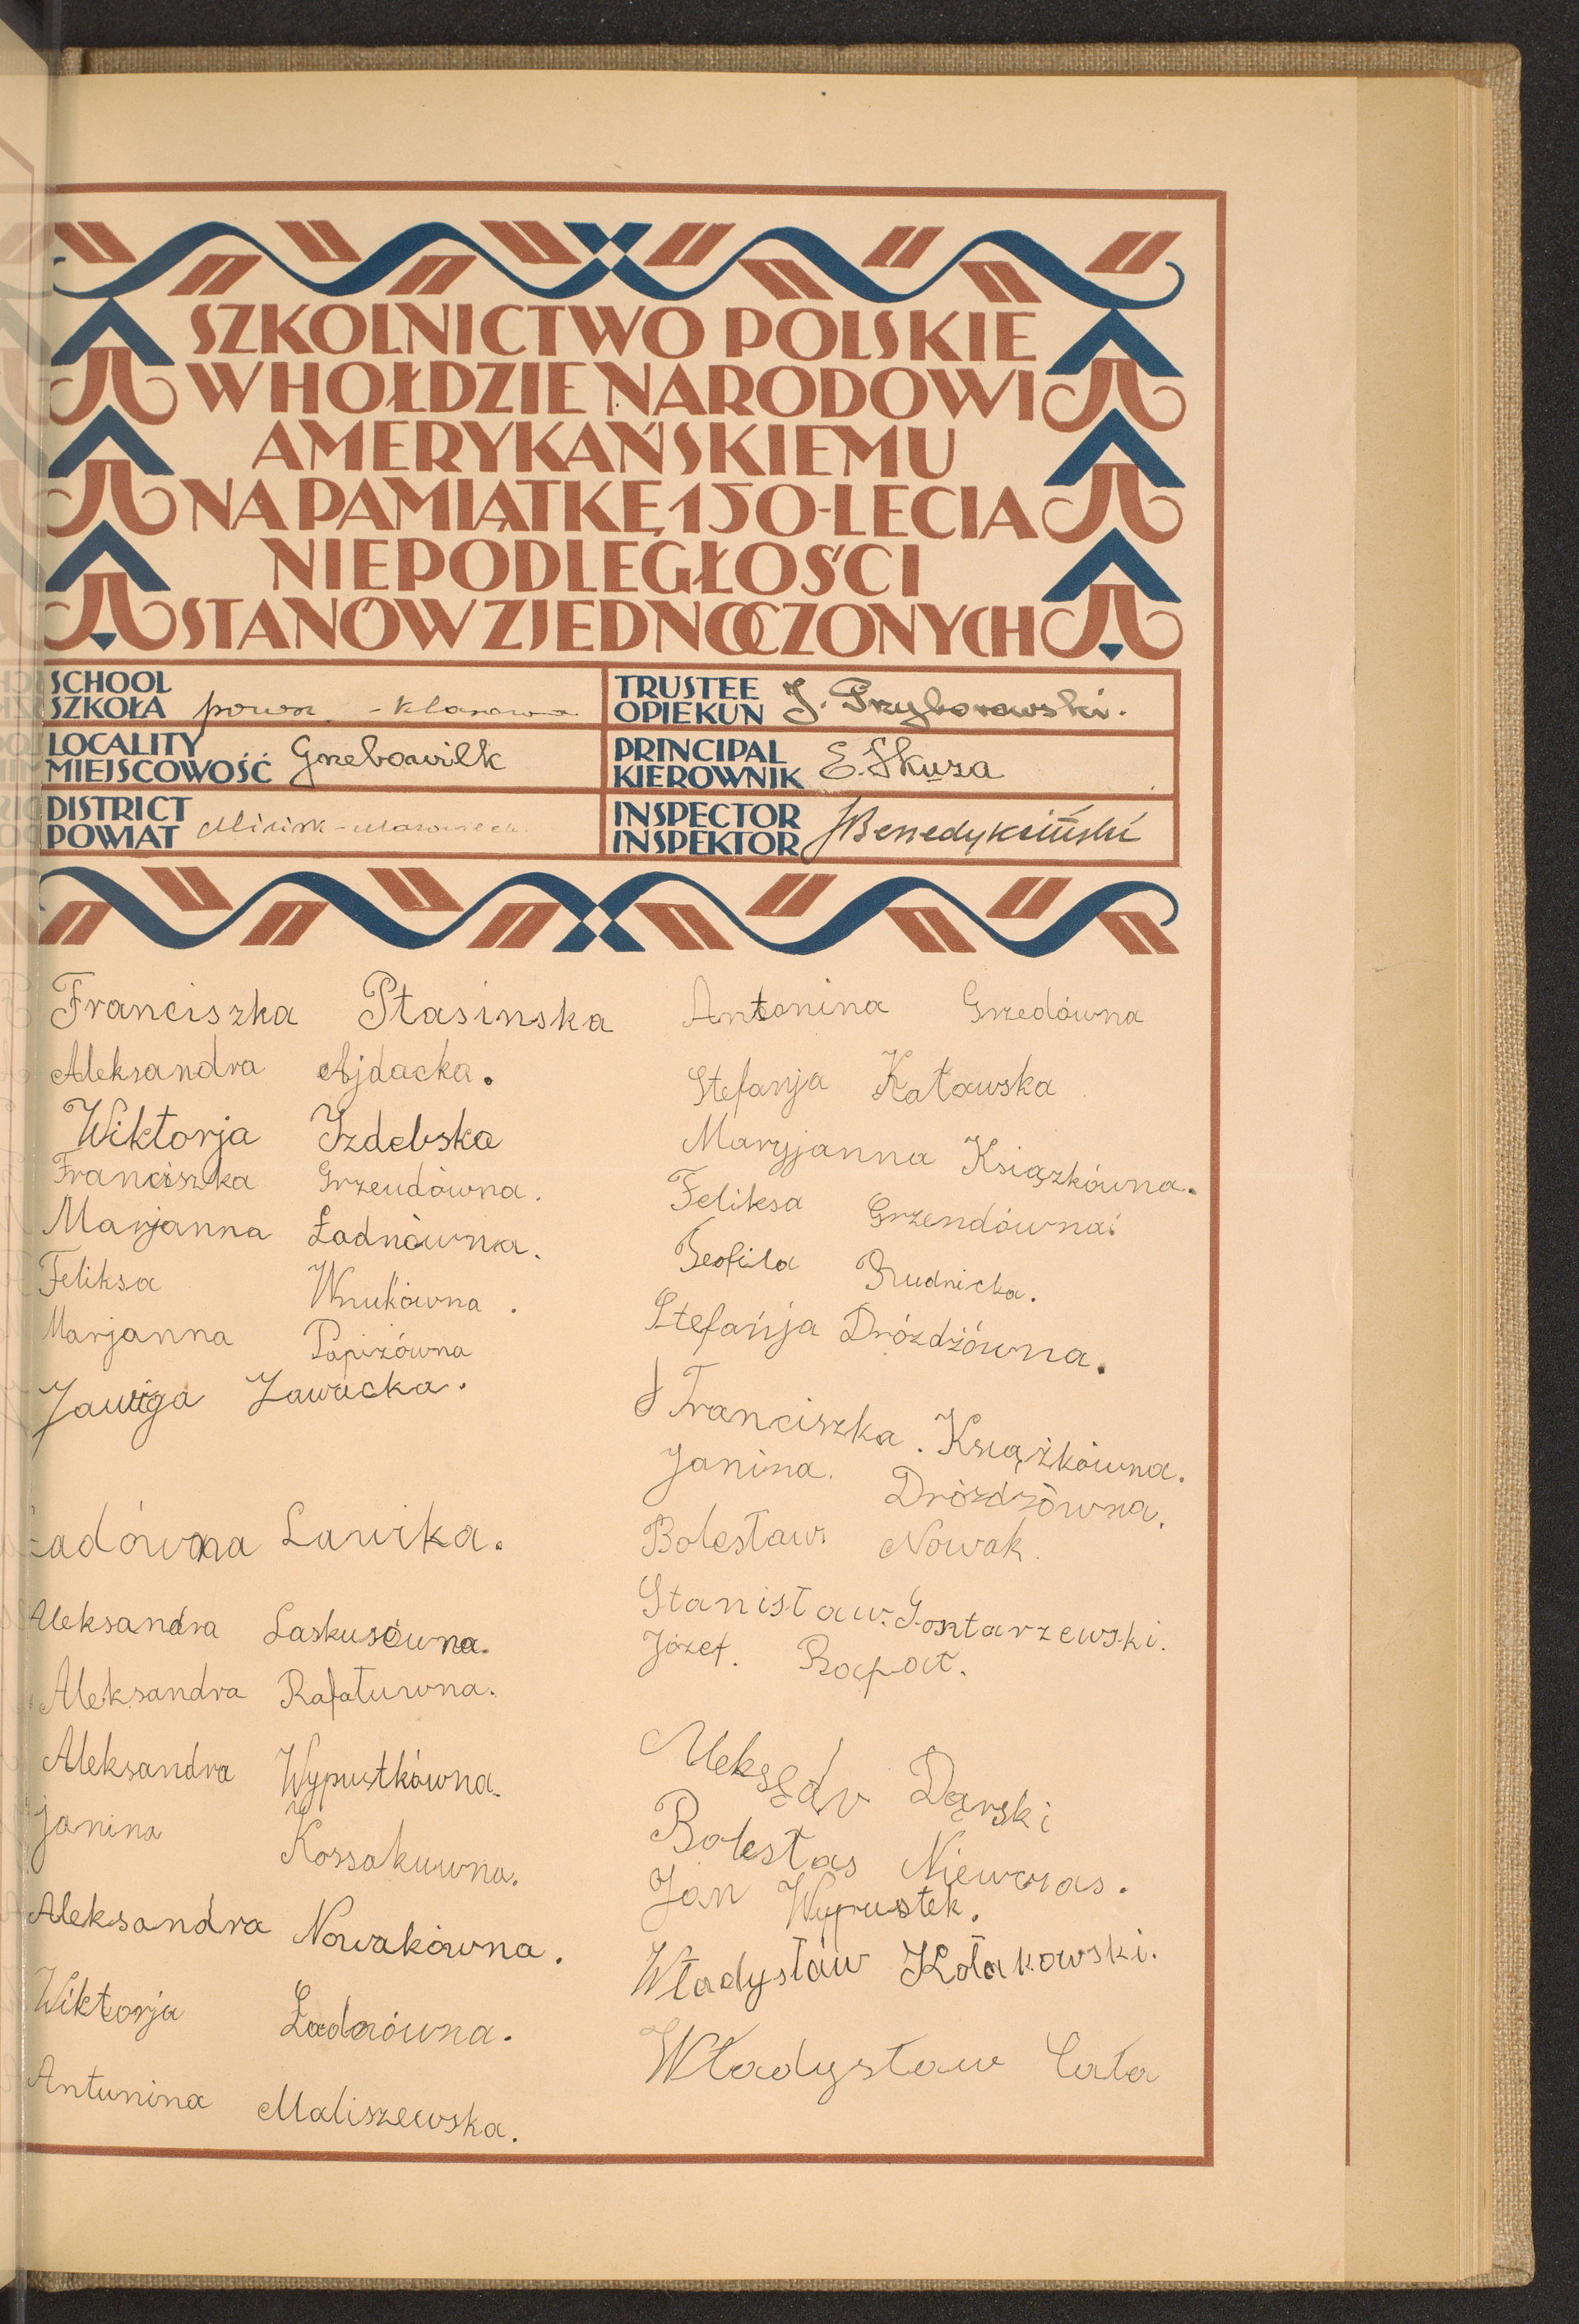 SZKOLNICTWO POLSKIE
W HOŁDZIE NARODOWI
AMERYKAŃSKIEMU
NA PAMIĄTKĘ 150-LECIA
NIEPODLEGŁOŚCI
STANÓW ZJEDNOCZONYCH
SCHOOL
SZKOŁA powsz. - klasowa
TRUSTEE
OPIEKUN J. Przyborowski.
LOCALITY
MIEJSCOWOŚĆ Grzebowilk
PRINCIPAL
KIEROWNIK E. Skuza
DISTRICT
POWIAT Mińsk-Mazowiecki
INSPECTOR
INSPEKTOR Benedykciński
Franciszka Ptasinska
Aleksandra Ajdacka.
Wiktorja Izdebska
Franciszka Grzendówna.
Marjanna Ładnówna.
Feliksa Wnukówna.
Marjanna Papizówna
Jawiga Zawacka.
Ładówna Lawika.
Aleksandra Laskusówna.
Aleksandra Rafałuwna.
Aleksandra Wypustkówna.
Janina Kossakuwna.
Aleksandra Nowakówna.
Wiktorja Ładnówna.
Antunina Maliszewska.
Antonina Grzedówna
Stefanja Katawska
Maryjanna Książkówna.
Feliksa Grzendówna.
Teofila Rudnicka.
Stefańja Dróżdżówna.
Franciszka. Książkówna.
Janina. Dróżdżówna.
Bolesław Nowak.
Stanisław. Gontarzewski.
Józef. Rafał.
Aleksędr Dąrski
Bolesłas Niewczas.
Jan Wypustek.
Władysław Kołakowski.
Władysław Cała